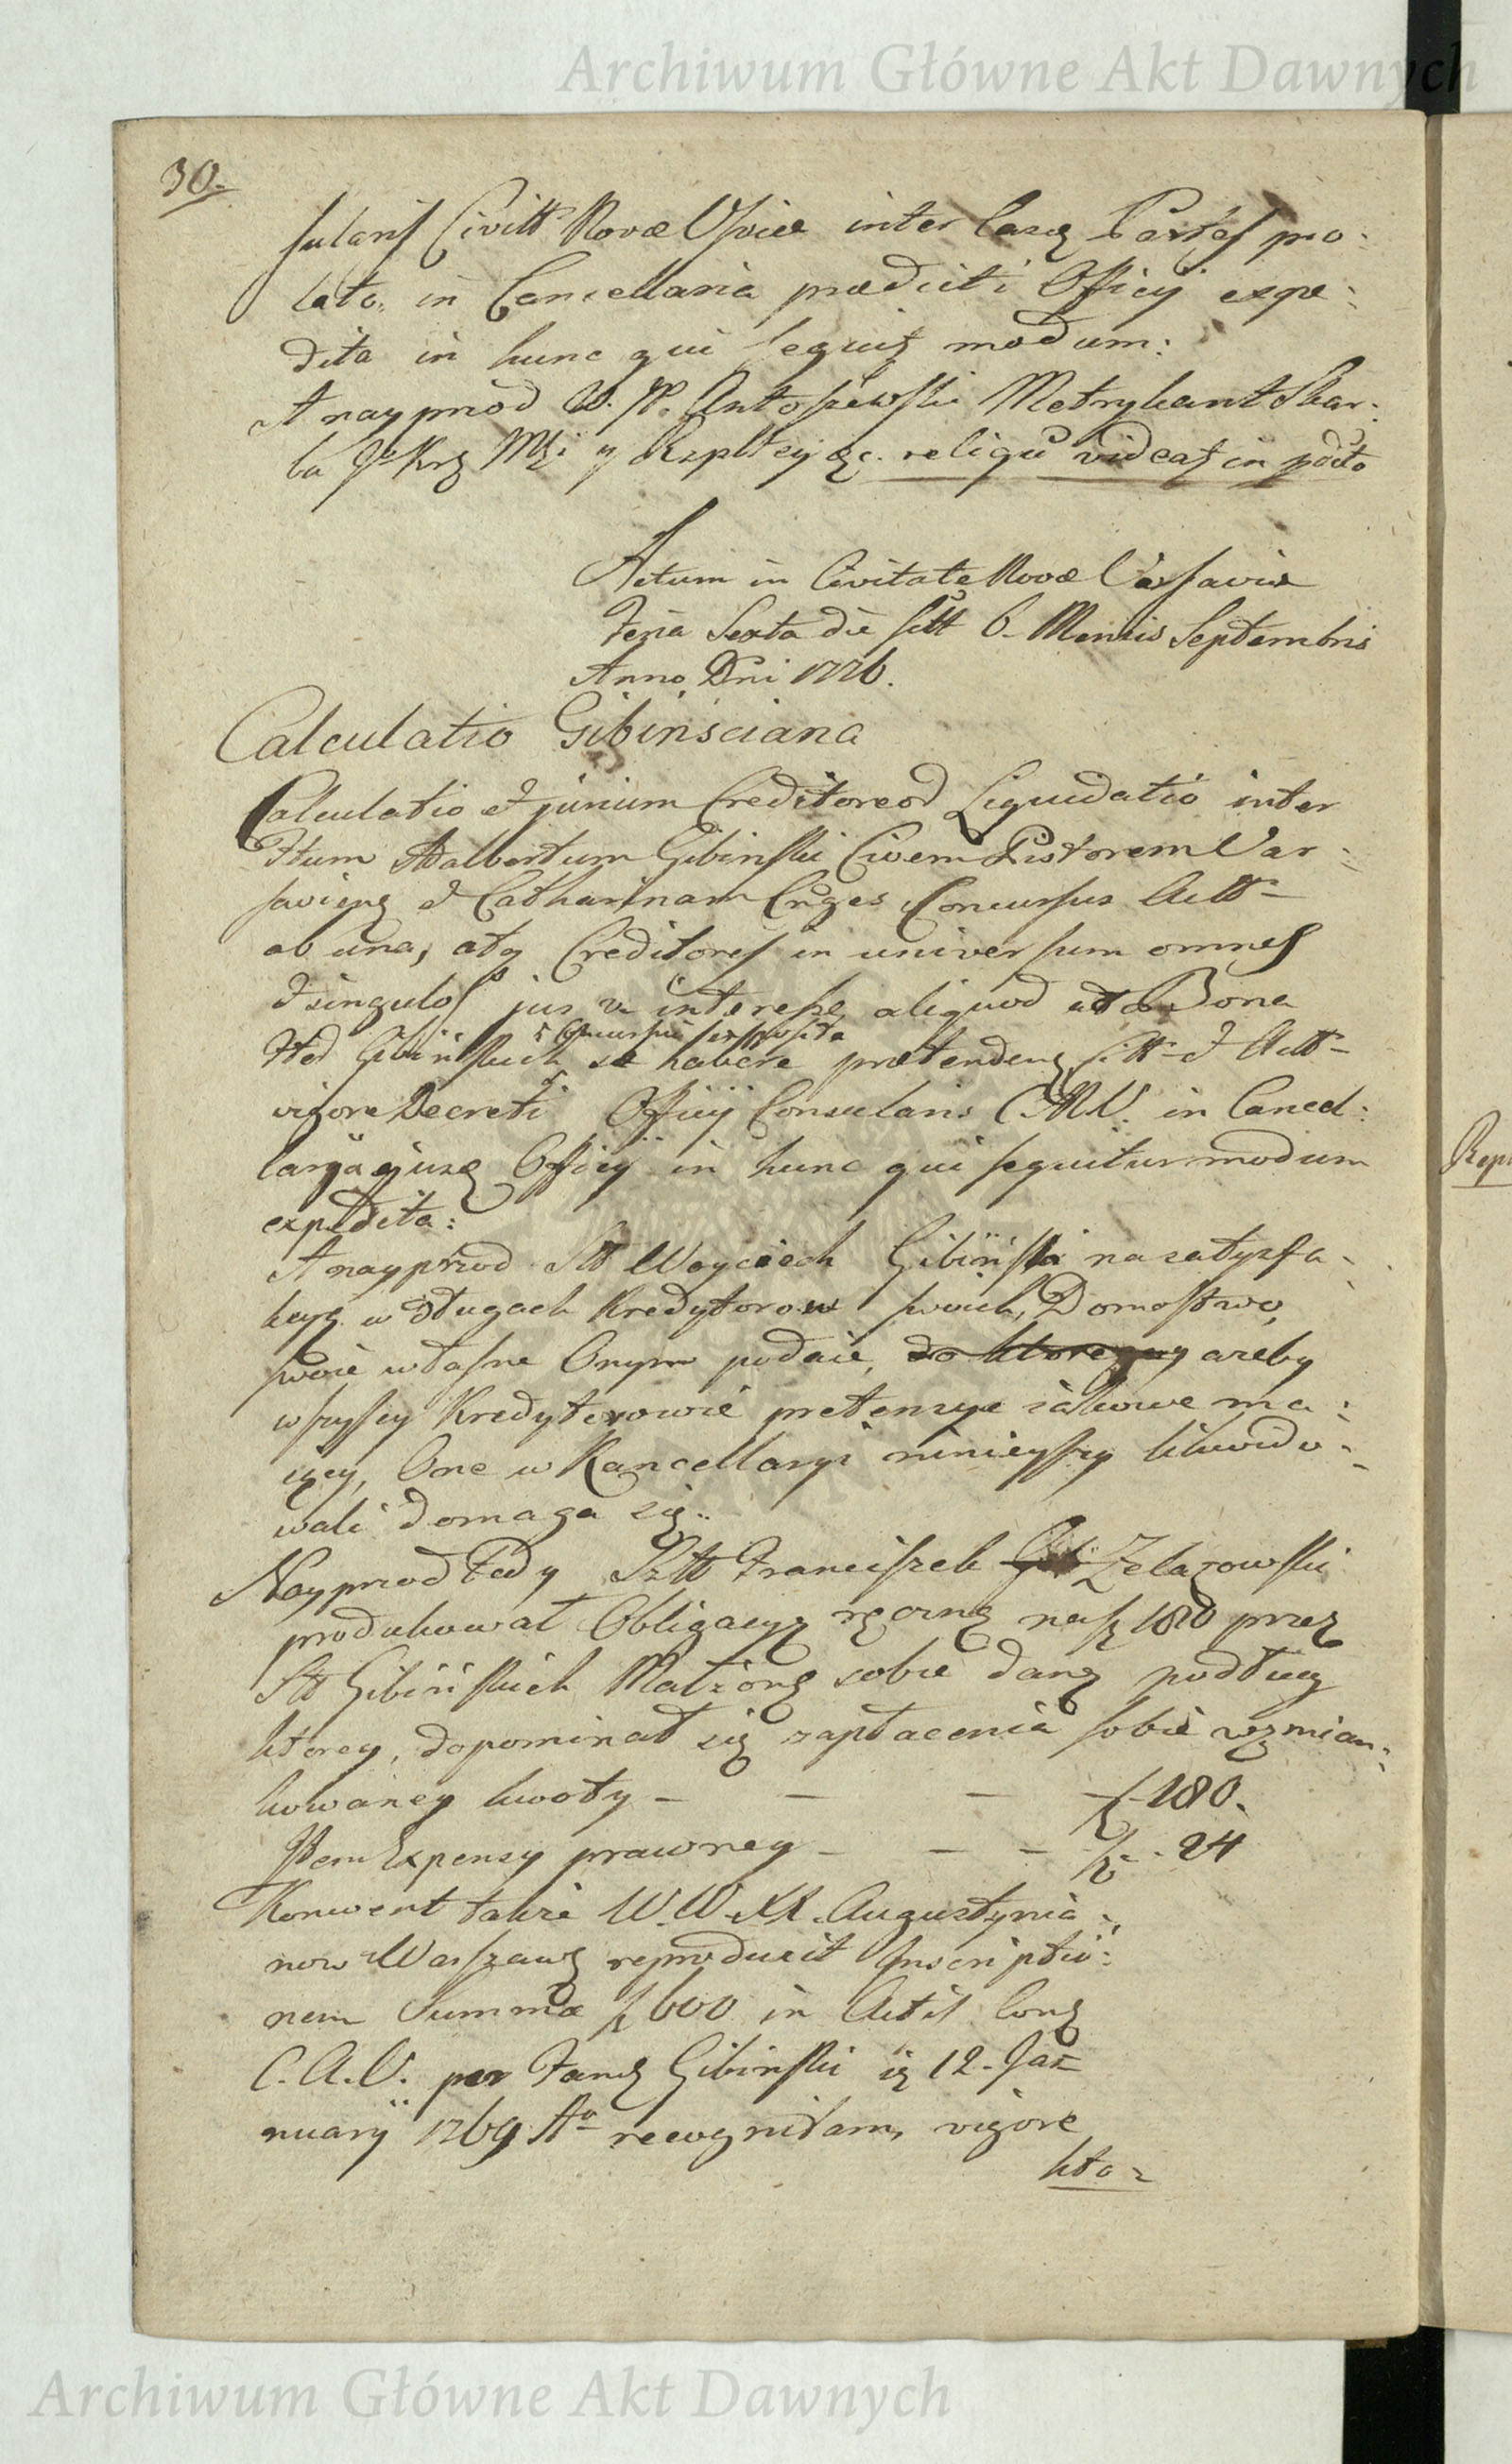 Archiwum Główne Akt Dawnych
30.
sularis Civitt Novæ Vsviæ inter easq Partes pro:
lato, in Cancellaria prædicti Officij expe:
dita in hunc qui sequitr modum:
A nayprzod W. JP. Antoszewski Metrykant Skar:
bu Jo Krz Mći y Rzpltey &c. reliqu videatr in prdto
Actum in Civitate Novæ Varsaviæ
Feria Sexta die scitt 6. Mensis Septembris
Anno Dni 1776.
Calculatio Gibinsciana
Calculatio et jurium Creditoreod Liquidatio inter
Ftum Adalbertum Gibinski Civem Pistorem Var:
saviens et Catharinam Cnges Concursus Actt
ab una, atq Creditores in universum omnes
et singulos jus v. interesse aliquod ad Bona
Concursui exposita
Fted Gibinskich se habere prætendens Citt et Actt
vigore Decreti Officij Consularis C.N.V. in Cancel:
laria ejusq Officij in hunc qui sequitur modum
expedita:
A nayprzod Stt Woyciech Gibinski na satysfa:
kcyą w długach Kredytorow swoich, Domostwo,
swoie własne Onym podaie, do ktorego azeby
wszyscy Kredytorowie pretensye iakowe ma:
iący, One w Kancellaryi ninieyszey likwido:
wali domaga się.
Nayprzod tedy Sztt Franciszek Zelazowski
produkował Obligacyą ręczną na f 180 przez
Stt Gibinskich Małzonk sobie daną podług
ktorey, dopominał się zapłacenia sobie wzmian:
kowaney kwoty – – – f 180.
Item Expensy prawney – – – f . 24
Konwent takze W.W. XX. Augustynia:
now Warszaws reproducit Inscriptio:
nem Summæ f 600 in Actis Cons
C.A.V. per Fand Gibinski 12. Ja:
nuarij 1769 Ao recognitam, vigore
kto:
Rep
Archiwum Główne Akt Dawnych